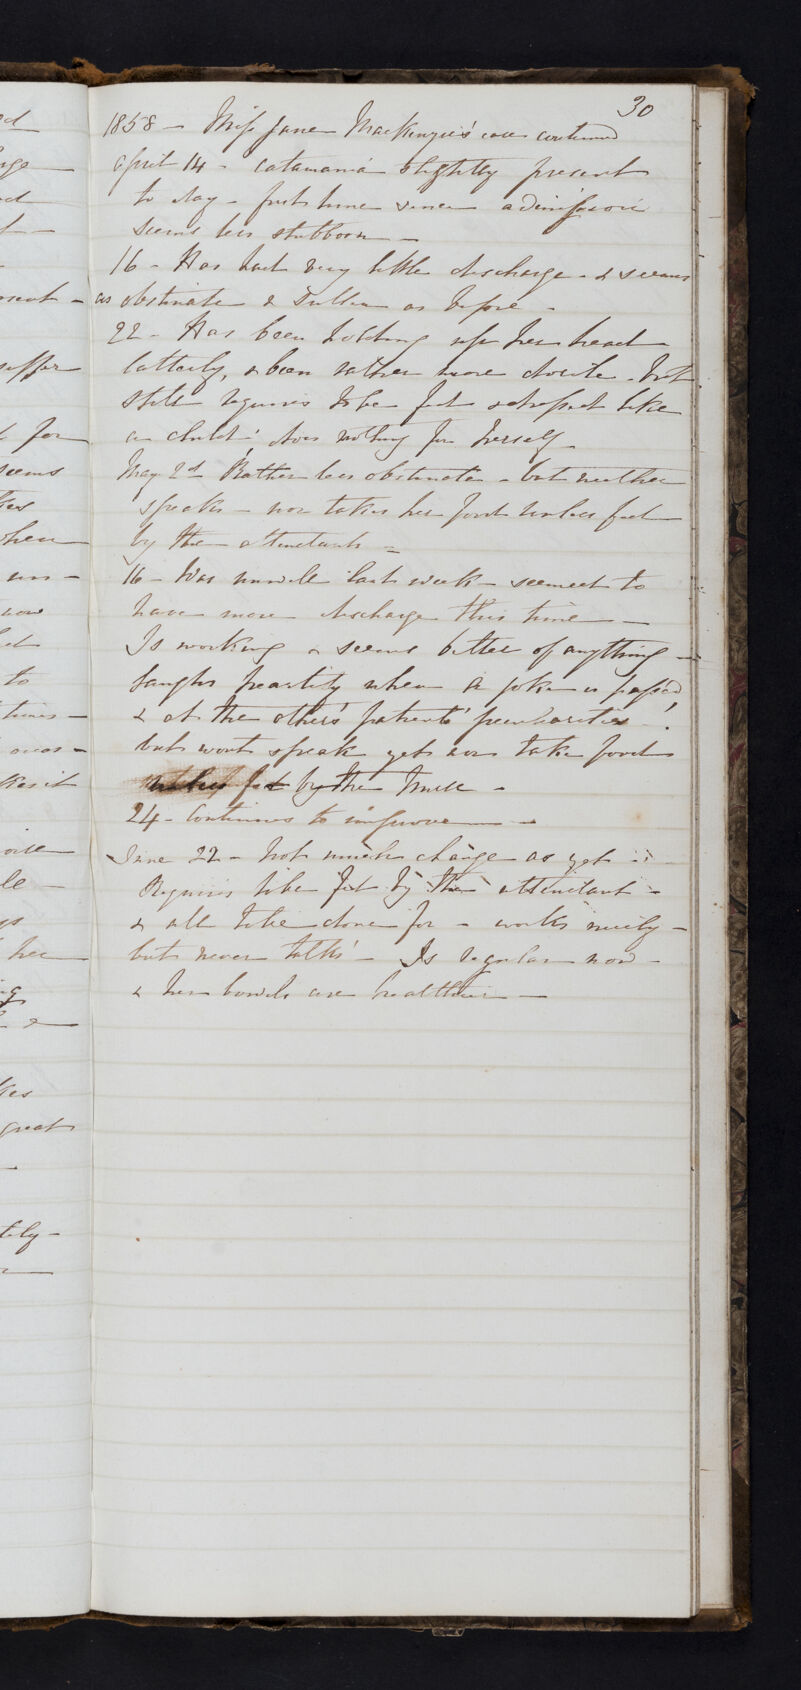 30
1858 - Miss Jane MacKenzie's case continued
April 14 - Catamania slightly present
to day - first time since admission
seems less stubborn -
16 - Has had very little discharge - & seems
as obstinate & sullen as before -
22 - Has been holding up her head
latterly, & been rather more docile - but
still requires to be fed & dressed like
a child, does nothing for herself
May 2d Rather less obstinate - but neither
speaks - nor takes her food unless fed
by the attendants -
16 - Was unwell last week - seemed to
have more discharge this time -
Is working & seems better if anything -
laughs heartily when a joke is passed
& at the others patients' peculiarities - !
but wont speak yet nor take food
unless fed by the Nurse -
24 - Continues to improve -
June 22 - Not much change as yet -
Requires to be fed by the attendant -
& all to be done for - works nicely -
but never talks - Is regular now -
& her bowels are healthier -